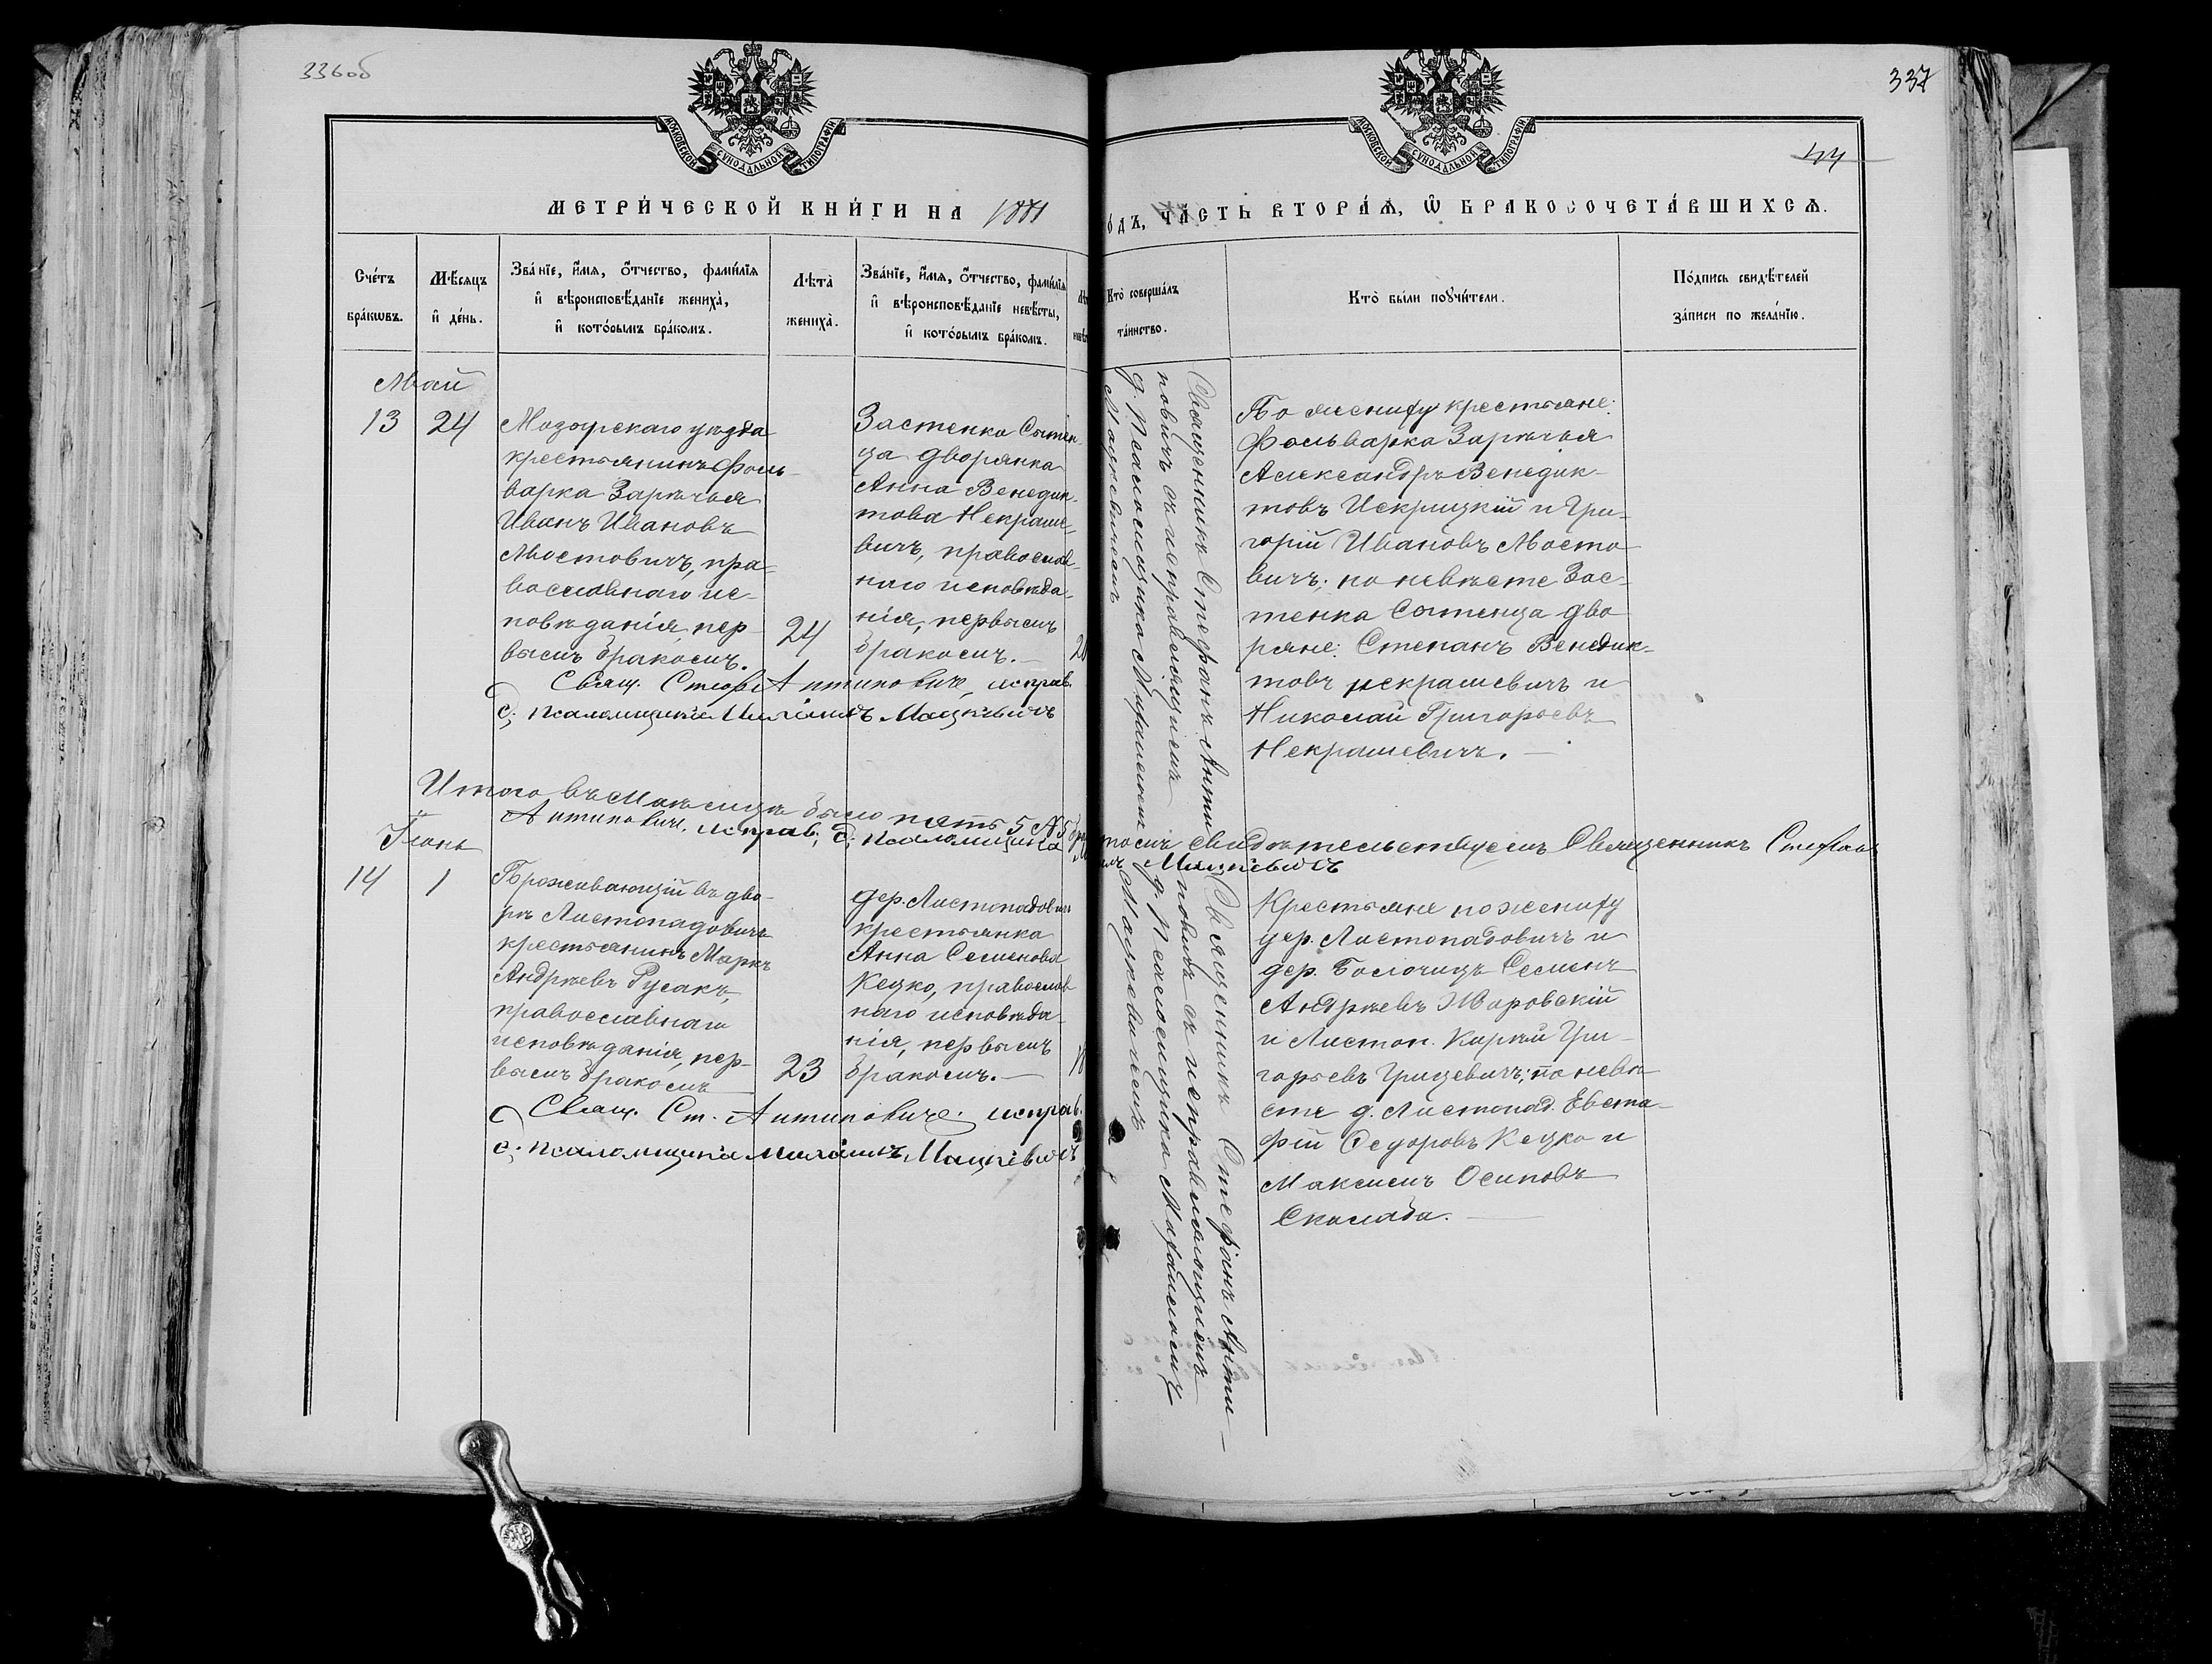 336об
337
44
МОСКОВСКОЙ СУНОДАЛЬНОЙ ТИПОГРАФІИ
МОСКОВСКОЙ СУНОДАЛЬНОЙ ТИПОГРАФІИ
МЕТРИ́ЧЕСКОЙ КНИ́ГИ НА 1881
О́ДЪ, ЧА́СТЬ ВТОРА́Ѧ, Ѡ БРАКОСОЧЕТА́ВШИХСѦ.
Сче́тъ
бра́кωвъ.
Мѣ́сѧцъ
и де́нь.
Зва́нїе, и́мѧ, о́тчество, фамилїѧ
и вѣроисповѣ́данїе жениха̀,
и кото́рымъ бра́комъ.
Лѣта̀
жениха̀.
Зва́нїе, и́мѧ, о́тчество, фамилїѧ
и вѣроисповѣ́данїе невѣ́сты,
и кото́рымъ бра́комъ.
Кто̀ соверша́лъ
та́инство.
Кто̀ бы́ли поꙋчи́тели.
По́дпись свидѣ́телей
за́писи по жела́нїю.
Май
13
24
Мозырскаго уѣзда
крестьянинъ фоль-
варка Зарѣчья
Иванъ Ивановъ
Мостовичъ, пра-
вославнаго ис-
повѣданія, пер-
вымъ бракомъ.
24
Застенка Сытен-
ца дворянка
Анна Венедик-
това Некраше-
вичъ, православ-
наго исповѣда-
нія, первымъ
бракомъ.
Священникъ Стефанъ Анти
повичъ съ исправляющимъ
д. Псаломщика Михаиломъ
Мацкевичемъ
По жениху крестьяне:
фольварка Зарѣчья
Александръ Венедик-
товъ Искрицкій и Гри-
горій Ивановъ Мосто-
вичъ; по невѣсте Зас-
тенка Сытенца дво
ряне: Степанъ Венедик-
товъ Некрашевичъ и
Николай Григорьевъ
Некрашевичъ.
Свящ. Стеф. Антиповичъ, исправ.
д. псаломщика Михаилъ Мацкевичъ
Итого въ Маѣ мѣсяцѣ было пять 5
свидѣтельствуемъ Священникъ Стефанъ
Антиповичъ, исправ. д. псаломщика
Мацкевичъ
Іюнь
14
1
Проживающій въ дво-
рѣ Листопадовичъ
крестьянинъ Маркъ
Андрѣевъ Русакъ,
православнаго
исповѣданія, пер-
вымъ бракомъ
23
дер. Листопадовичъ
крестьянка
Анна Семенова
Кецко, православ
наго исповѣда-
нія, первымъ
бракомъ.
18
Священникъ Стефанъ Анти-
повичъ съ исправляющимъ
д. Псаломщика Михаиломъ
Мацкевичемъ
Крестьяне по жениху
дер. Листопадовичъ и
дер. Болочицъ Семенъ
Андрѣевъ Жаровскій
и Листоп. Карпъ Гри-
горьевъ Грицевичъ; по невѣ-
сте д. Листопад. Евста-
фій Федоровъ Кецко и
Максимъ Осиповъ
Сколаба.
Свящ. Ст. Антиповичъ. исправ.
д. псаломщика Михаилъ Мацкевичъ